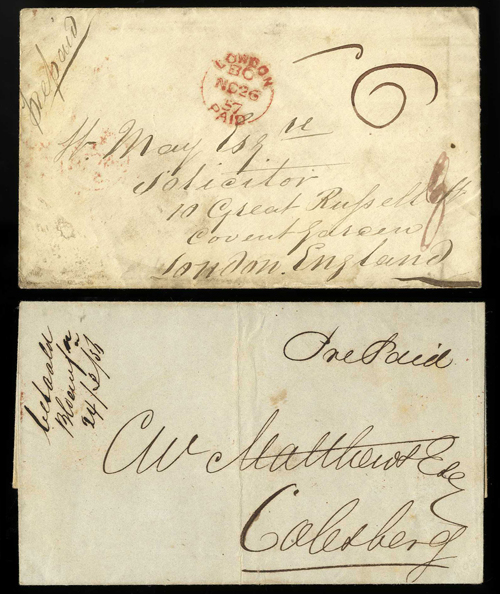 Prepaid
LONDON
BO
NO 26
57
PAID
6
Wm May Esqre
Solicitor
10 Great Russell St
Covent Garden
London. England
betaald
Bloemfn
24/2/56
PrePaid
CW Matthews Esq
Colesberg